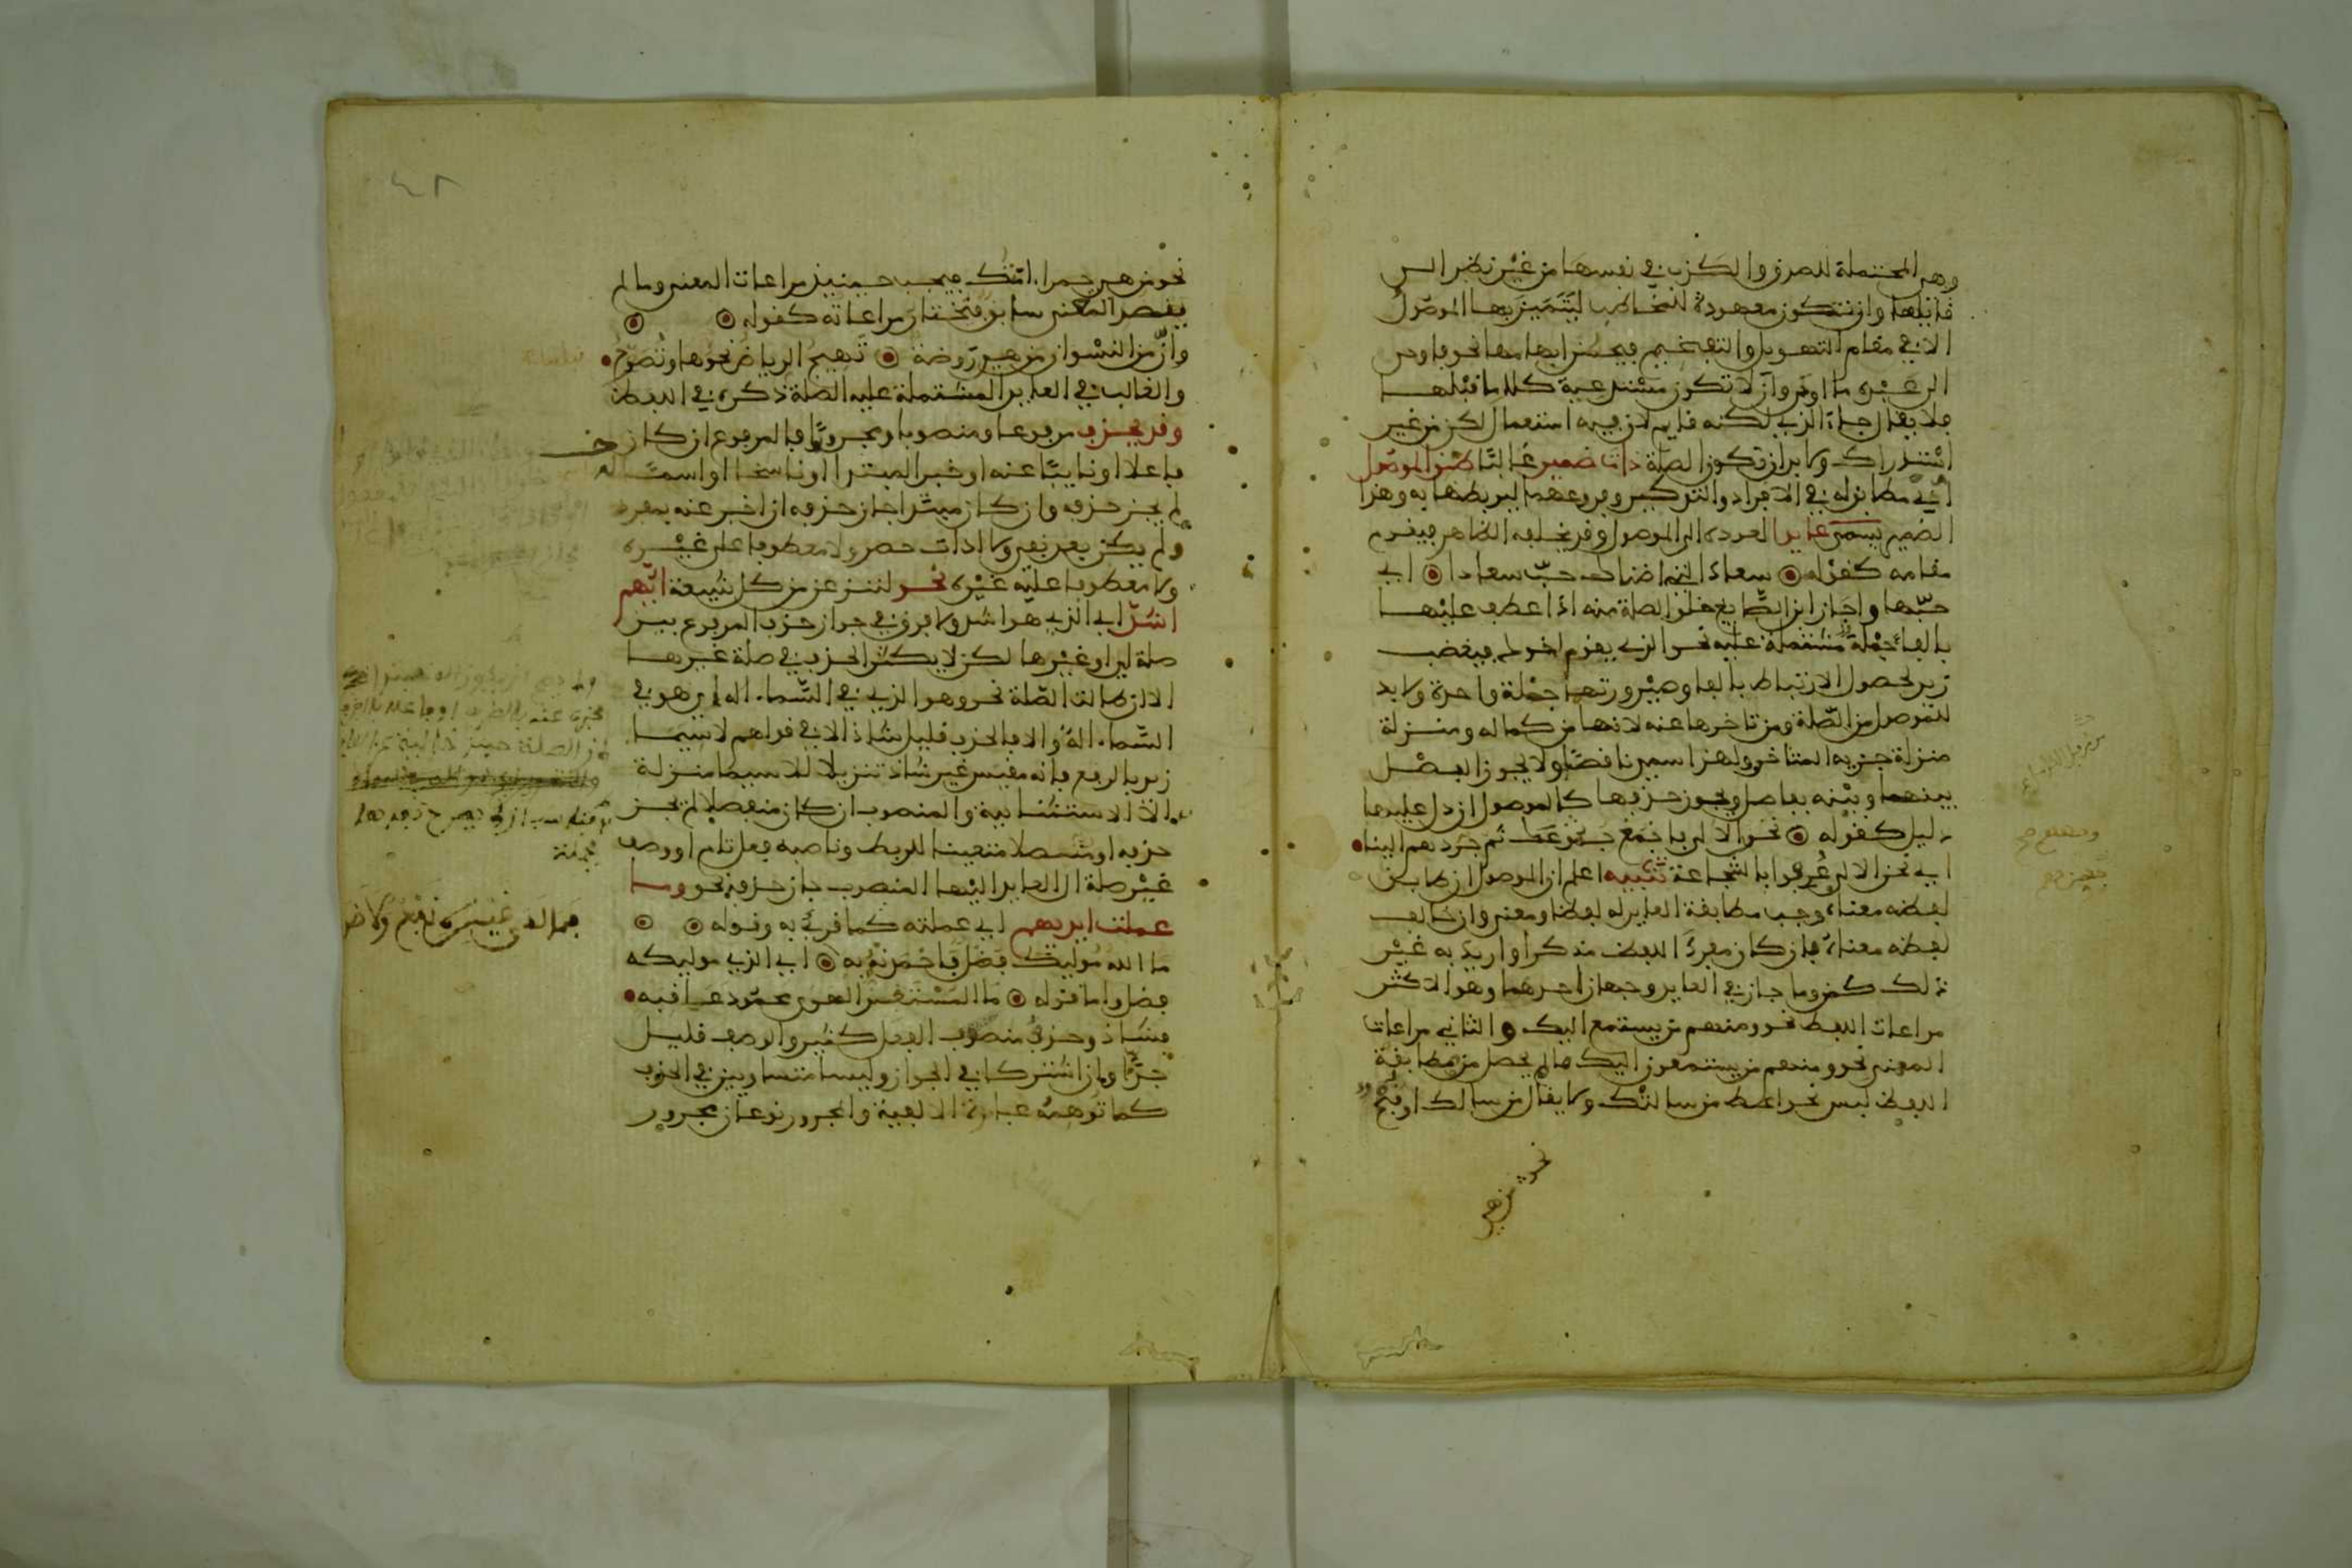 وهي المحتملة للصدق والكذب في نفسها من غير نظر الى
قائلها وان تكون معهودة للمخاطب ليتميز بها الموصول
الا في مقام التهويل والتفخيم فيحسن ابهامها نحو فاوحى
الى عبده ما اوحى وان لا تكون مستدعية كلاما قبلها
فلا يقال جاء الذي لكنه قايم لان فيه استعمال لكن من غير
استدراك ولا بد ان تكون الصلة ذات ضمير غالبا طبق الموصول
اي مطابق له في الافراد والتذكير وفروعهما ليربطها به وهذا
الضمير يسمى عايدا لعوده الى الموصول وقد يخلفه الظاهر فيقوم
مقامه كقوله سعاد التي اضناك حب سعادا اي
حبها واجاز ابن الصايغ خلو الصلة منه اذا عطف عليها
بالفاء جملة مشتملة عليه نحو الذي يقوم اخوك فيغضب
زيد لحصول الارتباط بالفاء وصيرورتهما جملة واحدة ولا بد
للموصول من الصلة ومن تاخرها عنه لانها من كماله ومنزلة
منزلة جزيه المتاخر ولهذا سمي ناقصا ولا يجوز الفصل
بينهما وبينه بفاصل ويجوز حذفها كالموصول ان دل عليهما
دليل كقوله نحن الالى فاجمع جموعك ثم جردهم الينا
اي نحن الالى عرفوا بالشجاعة تنبيه اعلم ان الموصول ان طابق
لفظه معناه وجب مطابقة العايد له لفظا ومعنى وان خالف
لفظه معناه فان كان مفرد اللفظ مذكرا واريد به غير
ذلك كمن وما جاز في العايد وجهان احدهما وهو الاكثر
مراعات اللفظ نحو ومنهم من يستمع اليك والثاني مراعات
المعنى نحو ومنهم من يستمعون اليك ما لم يحصل من مطابقة
اللفظ لبس نحو اعط من سالتك ولا يقال من سالك او قبح
نحو من هي
٤٢
نحو من هي حمراء امتك فيجب حينيذ مراعات المعنى وما لم
يعضد المعنى سابق فيختار مراعاته كقوله
وان من النسوان من هي روضة تهيج الرياض نحوها وتصوح
والغالب في العايد المشتملة عليه الصلة ذكره في اللفظ
وقد يحذف مرفوعا ومنصوبا ومجرورا فالمرفوع ان كان
فاعلا او نايبا عنه او خبرا لمبتدا او ناسخا او اسما له
لم يجز حذفه وان كان مبتدا جاز حذفه ان اخبر عنه بمفرد
ولم يكن بعد نفي ولا ادات حصر ولا معطوفا على غيره
ولا معطوفا عليه غيره نحو لننزعن من كل شيعة ايهم
اشد اي الذي هو اشد ولا فرق في جواز حذف المرفوع بين
صلة اي وغيرها لكن لا يكثر الحذف في صلة غيرها
الا ان طالت الصلة نحو وهو الذي في السماء اله اي هو في
السماء اله والا فالحذف قليل شاذ الا في قولهم لا سيما
زيد بالرفع فانه مقيس غير شاذ تنزيلا للا سيما منزلة
الا الاستثنايية والمنصوب ان كان منفصلا لم يجز
حذفه او متصلا متعينا للربط وناصبه فعل تام او وصف
غير صلة ال العايد اليها المنصوب جاز حذفه نحو وما
عملت ايديهم اي عملته كما قرئ به وقوله
ما الله موليك فضل فاحمدنه به اي الذي موليكه
فضل واما قوله ما المستفز الهوى محمود عاقبة
فشاذ وحذف منصوب الفعل كثير والوصف قليل
جدا وان اشتركا في الجواز وليسا متساويين في الحذف
كما توهمه عبارة الالفية والمجرور نوعان مجرور